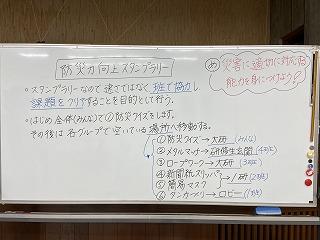 防災力向上スタンプラリー
め 災害に適切に対応する
能力を身につけよう!
・スタンプラリーなので速さではなく班で協力し
課題をクリアすることを目的として行う。
・はじめ全体(みんな)で①防災クイズをします。
その後は各グループで空いている場所へ移動する。
①防災クイズ→大研(みんな)
②メタルマッチ→研修生玄関(4班)
③ロープワーク→大研(3班)
④新聞紙スリッパ
⑤簡易マスク →小研(2班)
⑥タンカづくり→ロビー(1班)